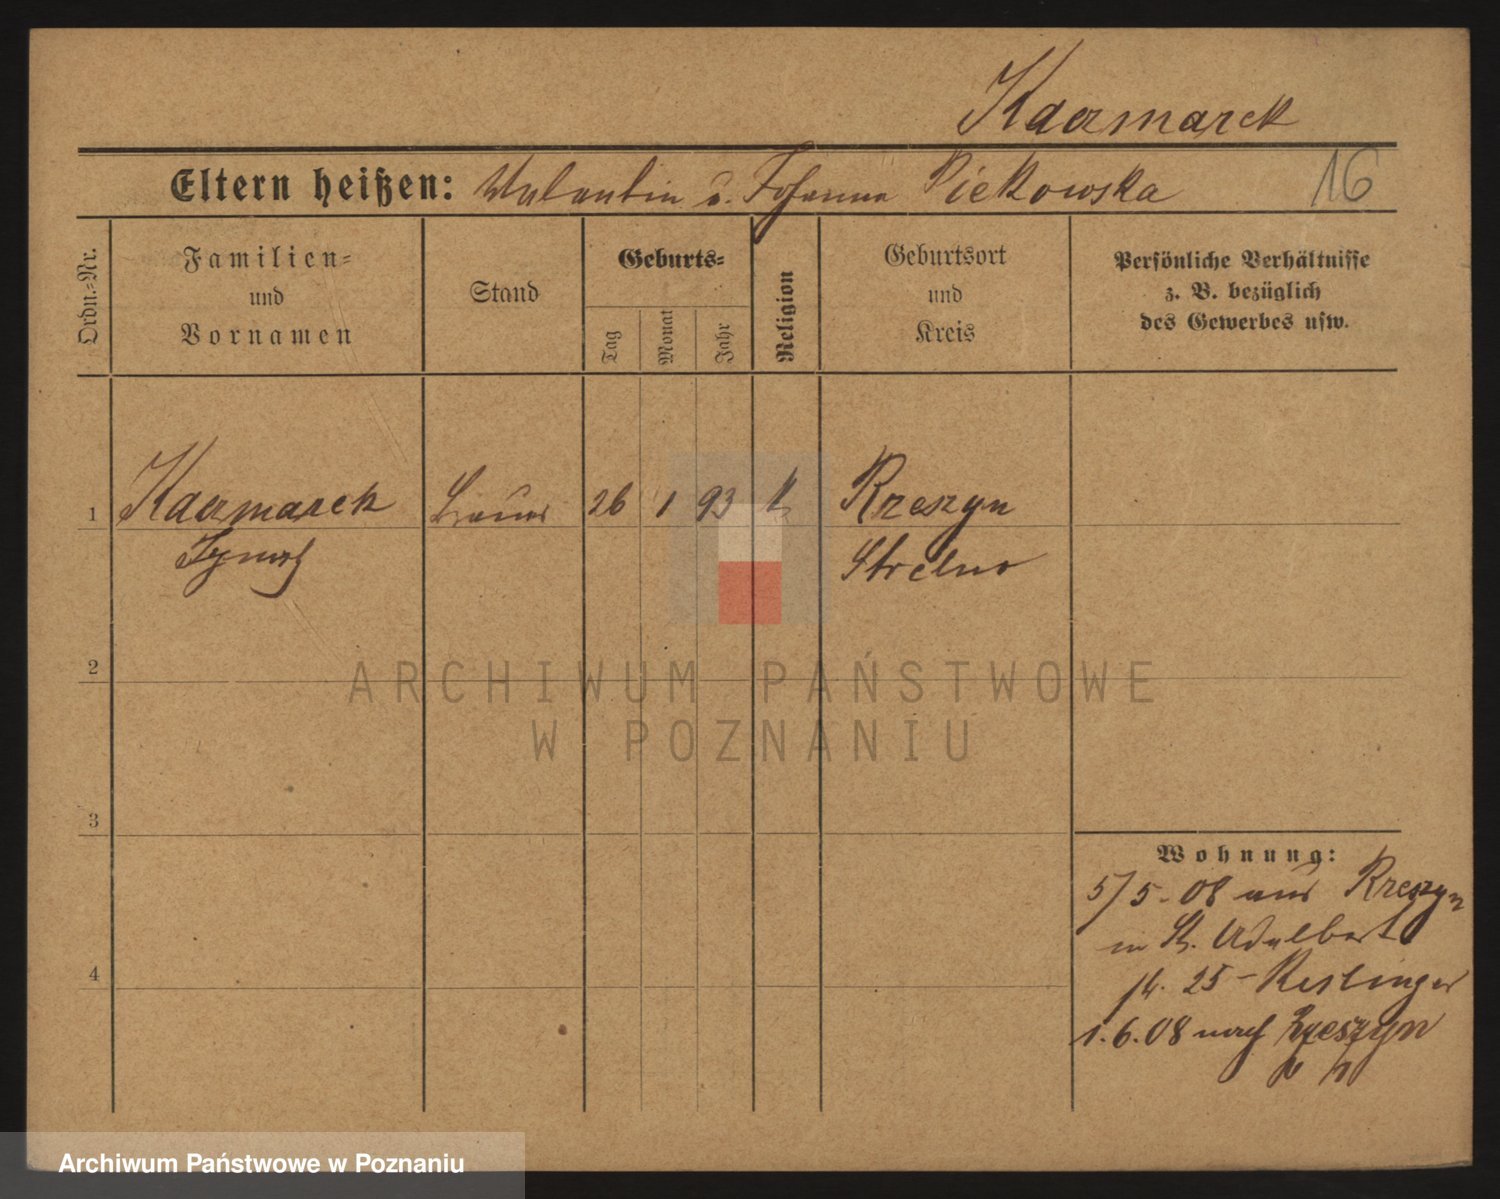 Kaczmarek
Eltern heißen: Valentin u. Johanna Piekowska
16
Ordn.-Nr.
Familien-
und
Vornamen
Stand
Geburts-
Tag
Monat
Jahr
Religion
Geburtsort
und
Kreis
Persönliche Verhältnisse
z. B. bezüglich
des Gewerbes usw.
1 Kaczmarek 26 1 93 k Rzeszyn
Strelno
2
3
4
Wohnung:
5/5.08 aus Rzeszyn
in St. Adalbert
25 - Reslinger
1.6.08 nach Rzeszyn
ARCHIWUM PAŃSTWOWE
W POZNANIU
Archiwum Państwowe w Poznaniu